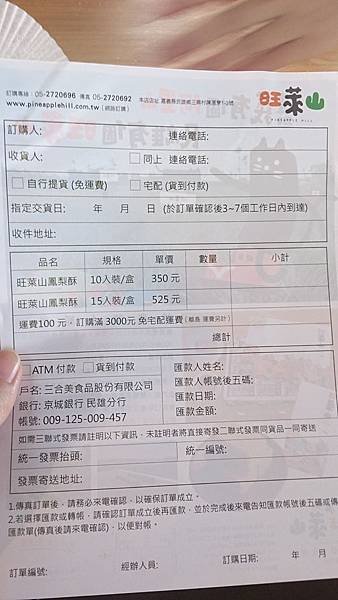 訂購專線:05-2720696 傳真 05-2720692
www.pineapplehill.com.tw (網路訂購)
旺萊山
PINEAPPLE HILL
訂購人: 連絡電話:
收貨人: □同上 連絡電話:
□自行提貨 (免運費) □宅配 (貨到付款)
指定交貨日: 年 月 日 (於訂單確認後3~7個工作日內到達)
收件地址:
品名 規格 單價 數量 小計
旺萊山鳳梨酥 10入裝/盒 350 元
旺萊山鳳梨酥 15入裝/盒 525 元
運費100 元,訂購滿 3000元 免宅配運費 (離島 運費另計)
總計
□ATM 付款 □貨到付款
戶名: 三合美食品股份有限公司
銀行: 京城銀行 民雄分行
帳號: 009-125-009-457
匯款人姓名:
匯款人帳號後五碼:
匯款日期:
匯款金額:
如需三聯式發票請註明以下資訊,未註明者將直接寄發二聯式發票同貨品一同寄送
統一發票抬頭: 統一編號:
發票寄送地址:
1.傳真訂單後,請務必來電確認,以確保訂單成立。
2.若選擇匯款或轉帳,請確認訂單成立後再匯款,並於完成後來電告知匯款帳號後五碼或傳
匯款單(傳真後請來電確認),以便對帳。
訂單編號: 經辦人員: 訂購日期: 年 月